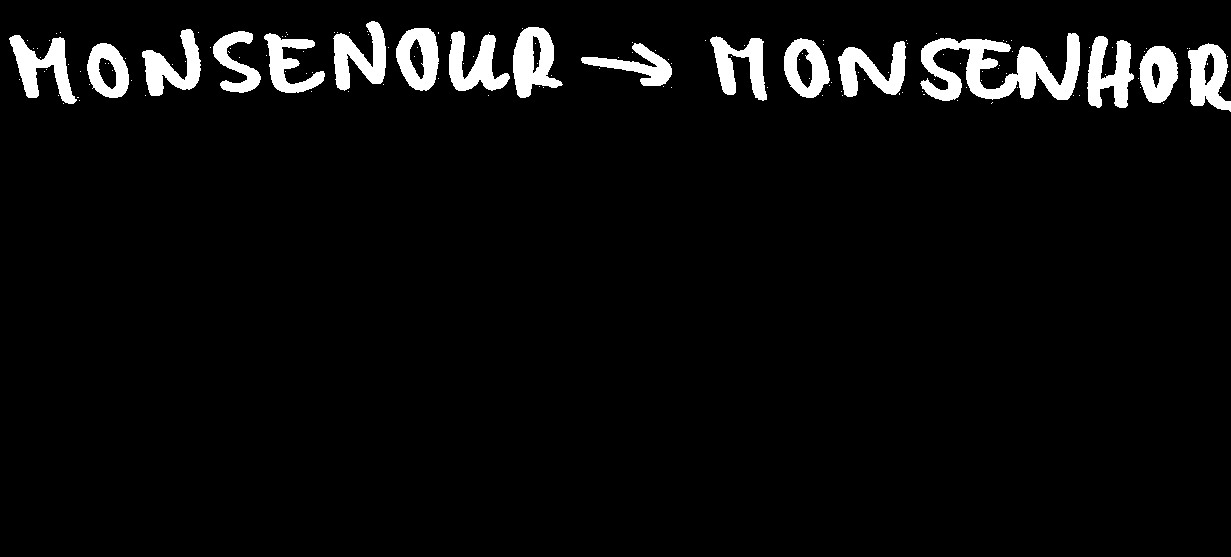 MONSENOUR → MONSENHOR